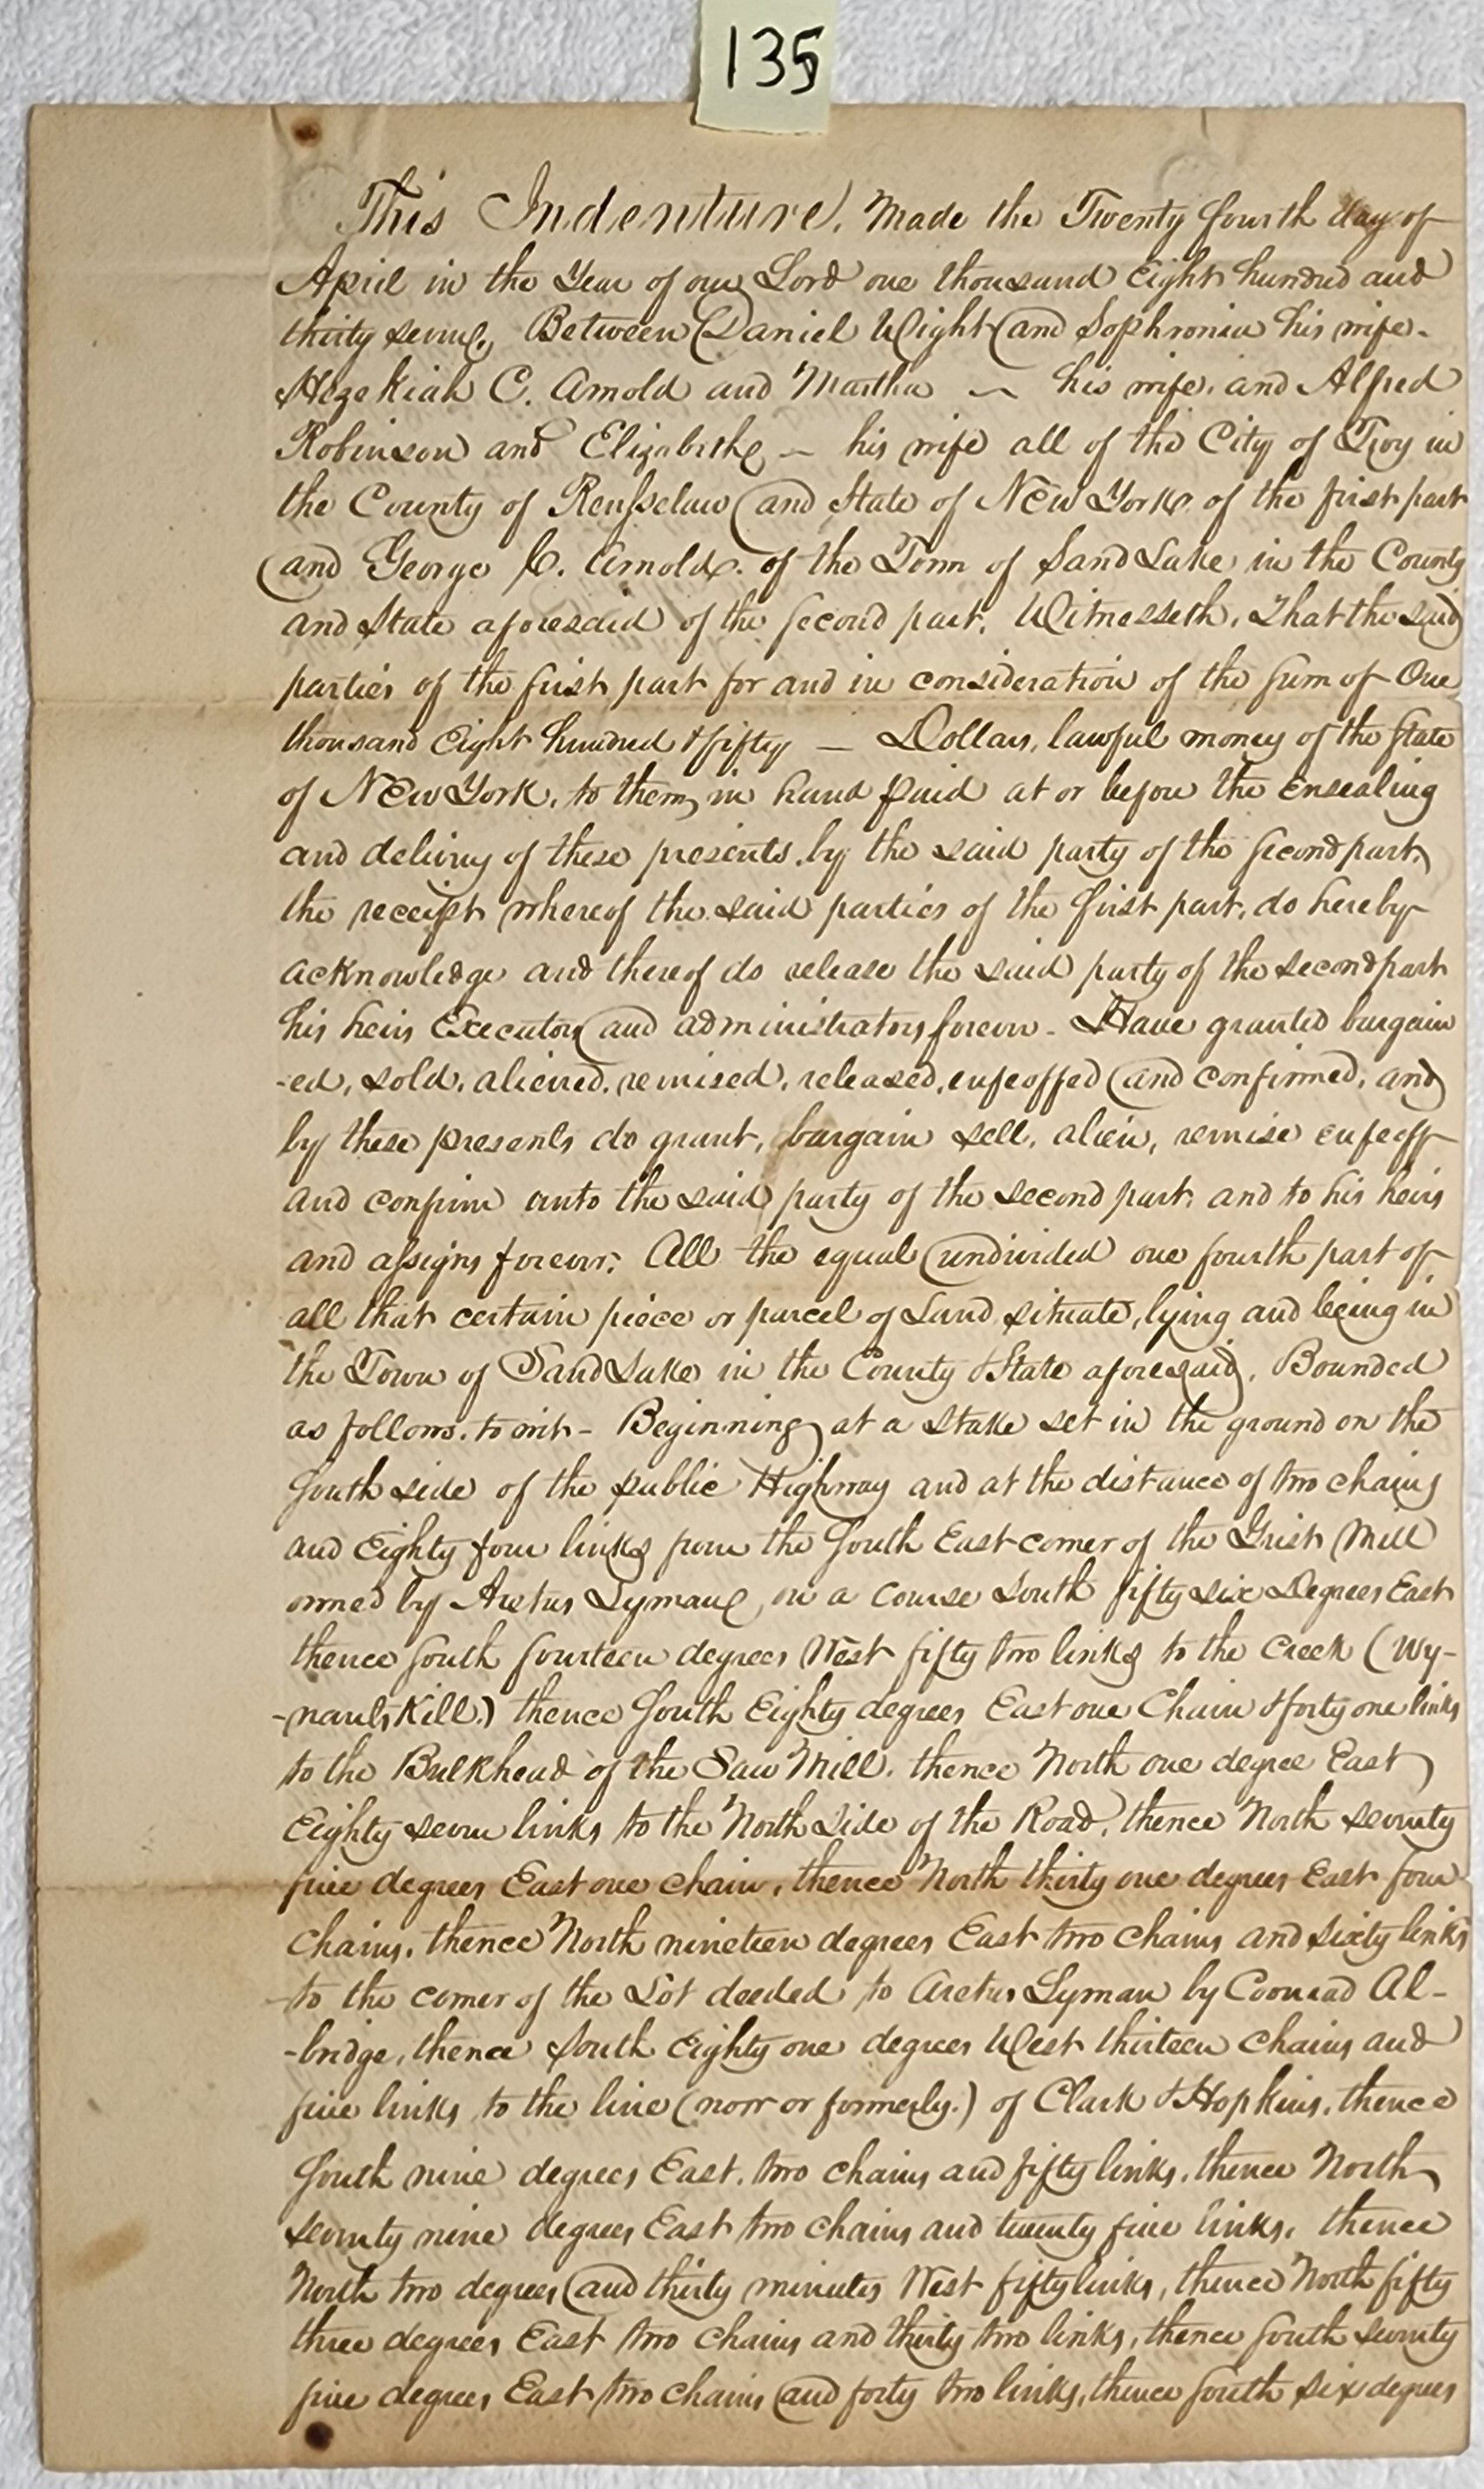 135
This Indenture, Made the Twenty fourth day of
April in the Year of our Lord one thousand Eight hundred and
thirty seven, Between Daniel Wight and Sophronia his wife.
Hezekiah C. Arnold and Martha ~ his wife, and Alfred
Robinson and Elizabeth ~ his wife all of the City of Troy in
the County of Rensselaer and State of New York of the first part
and George C. Arnold. of the Town of Sand Lake in the County
and State aforesaid of the Second part. Witnesseth, That the said
parties of the first part for and in consideration of the Sum of One
thousand Eight hundred & fifty — Dollars, lawful money of the State
of New York, to them in hand paid at or before the ensealing
and delivery of these presents, by the said party of the Second part,
the receipt whereof the said parties of the first part, do hereby
acknowledge and thereof do release the said party of the second part
his heirs Executors and administrators forever - Have granted bargain
-ed, sold, aliened, remised, released, enfeoffed and confirmed, and
by these presents do grant, bargain sell, alien, remise enfeoff
and confirm unto the said party of the second part, and to his heirs
and assigns forever: All the equal undivided one fourth part of
all that certain piece or parcel of Land situate, lying and being in
the Town of Sand Lake in the County & State aforesaid, Bounded
as follows, to wit - Beginning at a stake set in the ground on the
South side of the public Highway and at the distance of two chains
and Eighty four links from the South East corner of the Grist Mill
owned by Aretus Lyman, on a course South fifty six Degrees East
thence South fourteen degrees West fifty two links to the Creek (Wy-
-nants Kill.) thence South Eighty degrees East one Chain & forty one links
to the Bulkhead of the Saw Mill, thence North one degree East
Eighty seven links to the North side of the Road, thence North seventy
five degrees East one chain, thence North thirty one degrees East four
chains, thence North nineteen degrees East two chains and sixty links
to the corner of the Lot deeded to Aretus Lyman by Coonrad Al-
-bridge, thence South Eighty one degrees West thirteen chains and
five links to the line (now or formerly.) of Clark & Hopkins, thence
South nine degrees East, two chains and fifty links, thence North
seventy nine degrees East two chains and twenty five links, thence
North two degrees and thirty minutes West fifty links, thence North fifty
three degrees East two chains and thirty two links, thence South seventy
five degrees East two chains and forty two links, thence South six degrees